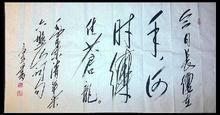 今日長纓在
手何
時縛
住蒼龍。
清平樂
六盤山詞句